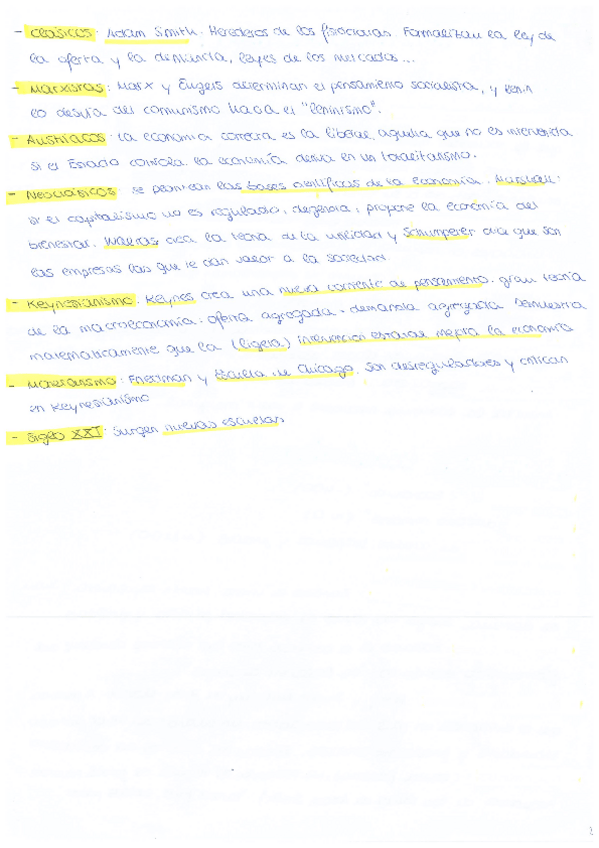 - Clásicos. Adam Smith. Herederos de los fisiócratas. Formalizan la ley de
la oferta y la demanda, leyes de los mercados...
- Marxistas: Marx y Engels determinan el pensamiento socialista, y Lenin
lo desvía del comunismo hacia el "leninismo".
- Austriacos: La economía correcta es la liberal, aquella que no es intervenida
si el Estado controla la economía deriva en un totalitarismo.
- Neoclásicos: se plantean las bases científicas de la economía. Marshall:
si el capitalismo no es regulado, degenera, propone la economía del
bienestar. Walras crea la teoría de la utilidad y Schumpeter cree que son
las empresas las que le dan valor a la sociedad.
- Keynesianismo. Keynes crea una nueva corriente de pensamiento. gran teoría
de la macroeconomía. oferta agregada - demanda agregada Demuestra
matemáticamente que la (ligera) intervención estatal mejora la economía
- Monetarismo: Friedman y Escuela de Chicago. Son desreguladores y critican
el Keynesianismo
- Siglo XXI. Surgen nuevas escuelas